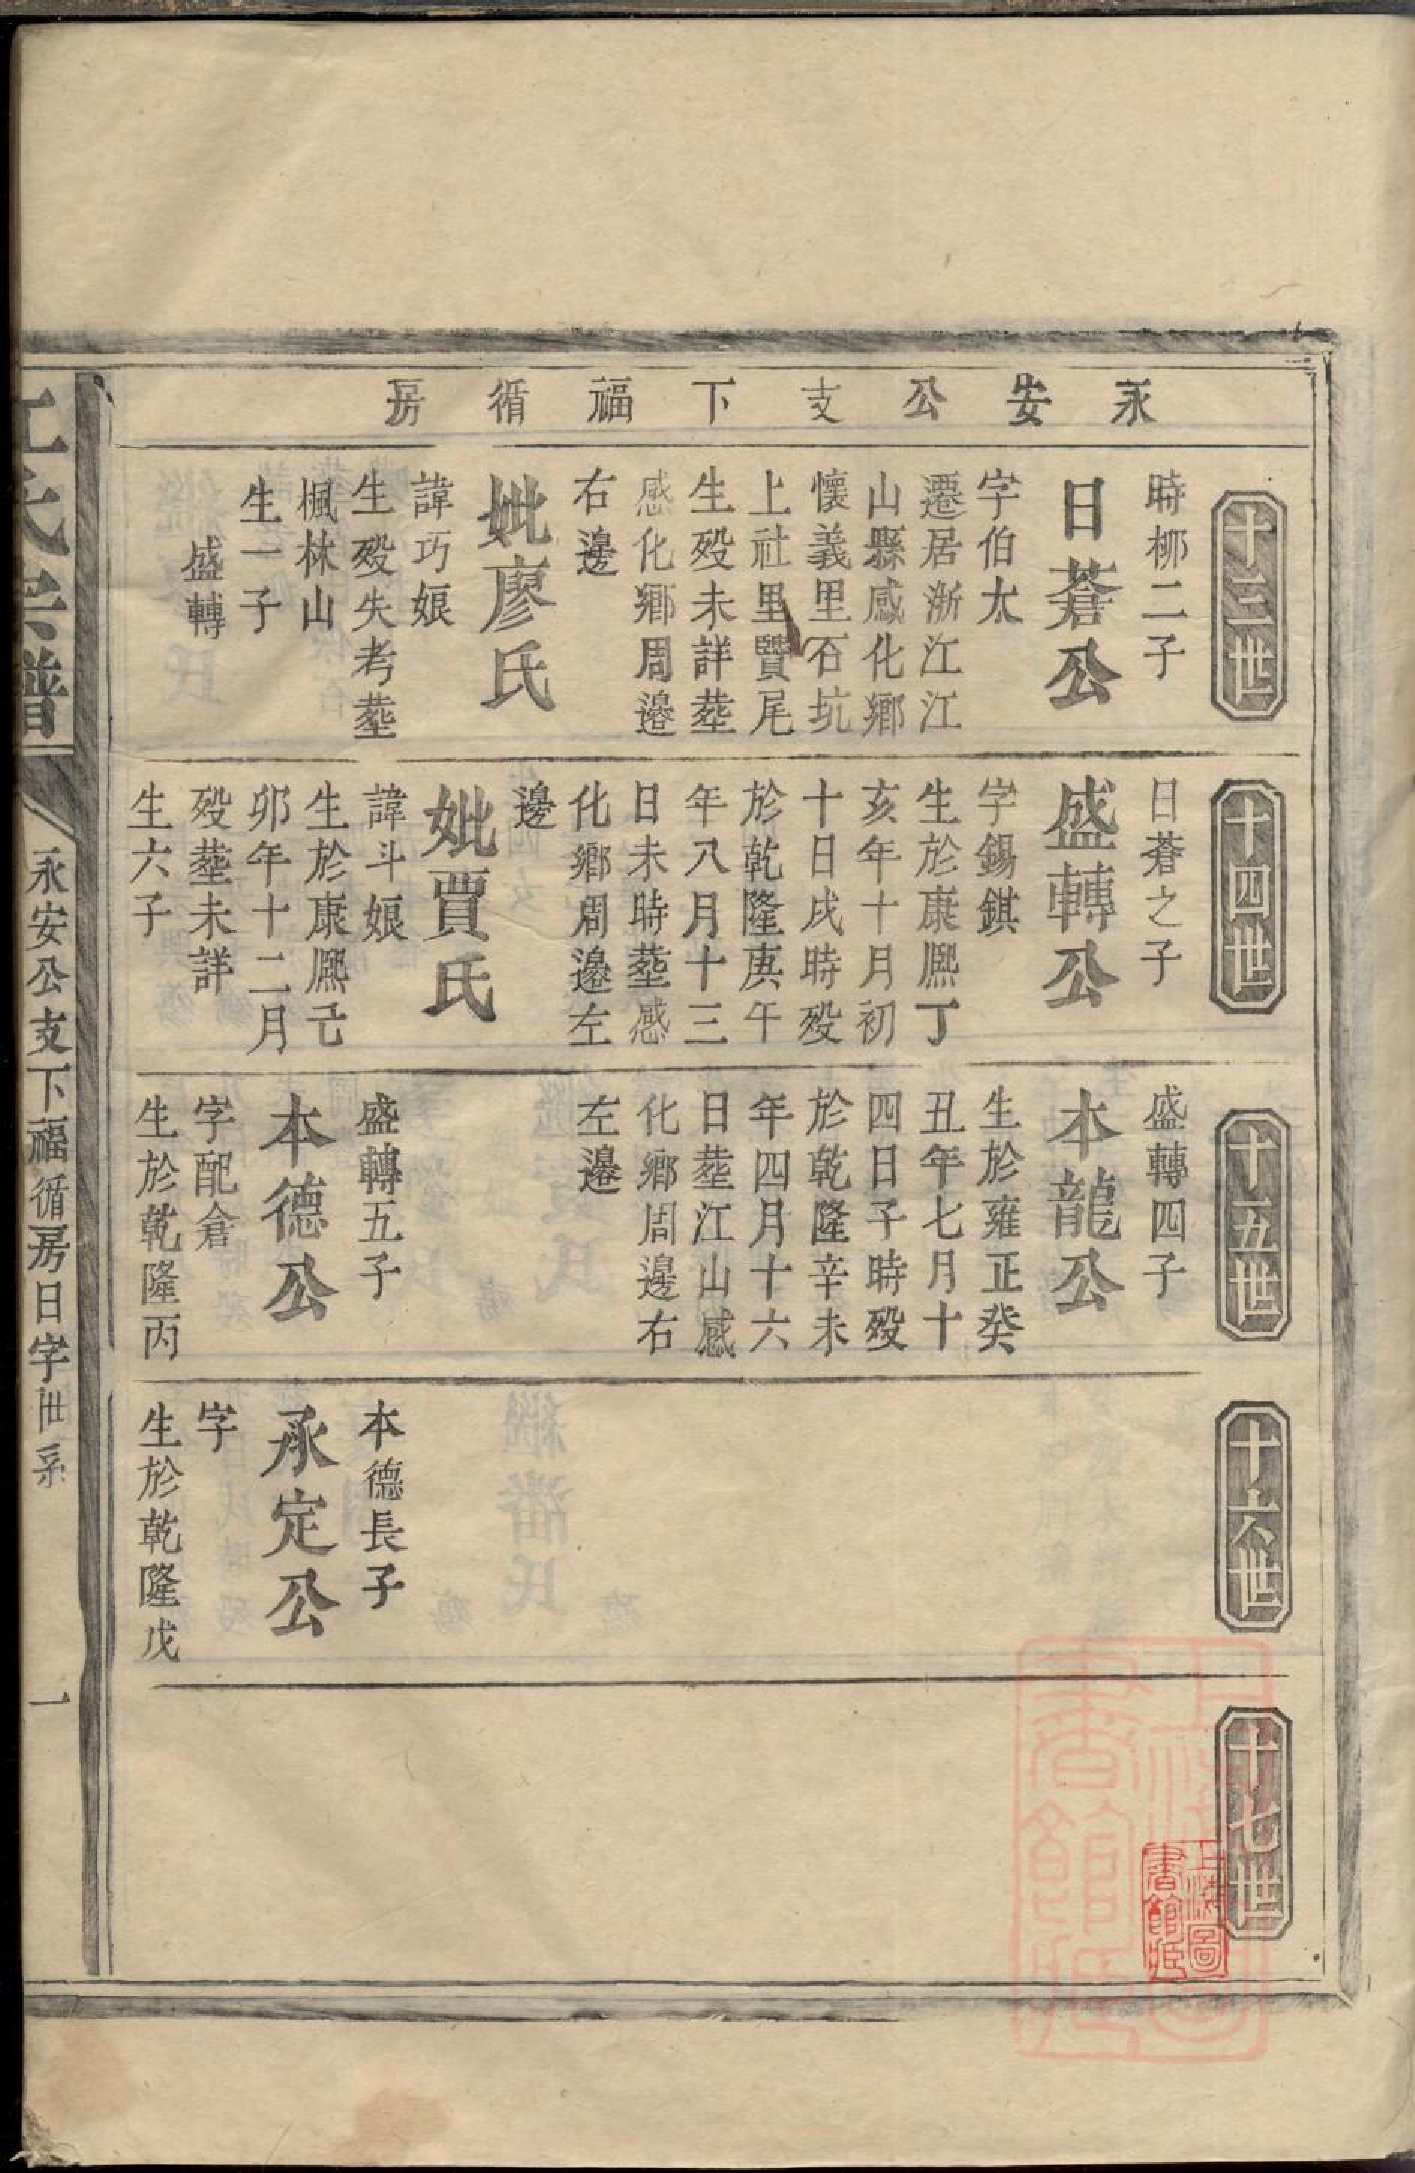 永安公支下福循房
十三世
時柳二子
日蒼公
字伯太
遷居浙江江
山縣感化鄉
懷義里石坑
上社里贒尾
生殁未詳塟
感化鄉周邊
右邊
妣廖氏
諱巧娘
生殁失考塟
楓林山
生一子
盛轉
十四世
日蒼之子
盛轉公
字錫錤
生於康熈丁
亥年十月初
十日戌時殁
於乾隆庚午
年八月十三
日未時塟感
化鄉周邊左
邊
妣賈氏
諱斗娘
生於康熈己
卯年十二月
殁塟未詳
生六子
十五世
盛轉四子
本龍公
生於雍正癸
丑年七月十
四日子時殁
於乾隆辛未
年四月十六
日塟江山感
化鄉周邊右
左邊
盛轉五子
本德公
字配倉
生於乾隆丙
十六世
本德長子
承定公
字
生於乾隆戊
十七世
氏宗譜
永安公支下福循房日字世系
一
上海圖書館藏